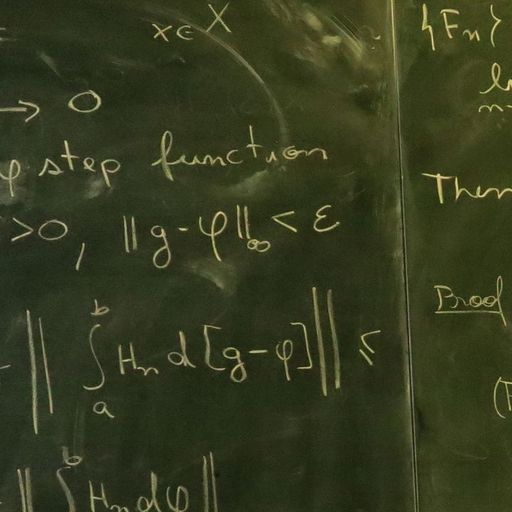 x ∈ X
→ 0
φ step function
>0, ||g-φ||∞ < ε
|| ∫_a^b H_n d[g-φ] || ≤
|| ∫^b H_n dφ ||
{F_n}
Then
Proof